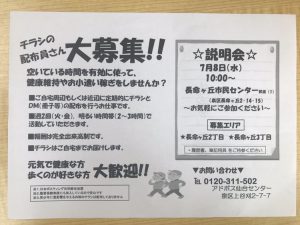 チラシの
配布員さん 大募集!!
空いている時間を有効に使って、
健康維持やお小遣い稼ぎをしませんか?
■ご自宅周辺もしくは近辺に定期的にチラシと
DM(冊子等)の配布を行うお仕事です。
■週2回(火・金)、明るい時間帯(2~3時間)で
活動していただきます。
■報酬は完全出来高制です。
■チラシはご自宅までお届けします。
元気で健康な方
歩くのが好きな方 大歓迎!!
☆説明会☆
7月8日(水)
10:00~
長命ヶ丘市民センター
(泉区長命ヶ丘2-14-15)
~お気軽にご参加ください~
募集エリア
★長命ヶ丘2丁目 ★長命ヶ丘3丁目
▼お問い合わせ▼
TEL 0120-311-502
アドポス仙台センター
泉区上谷刈2-7-7